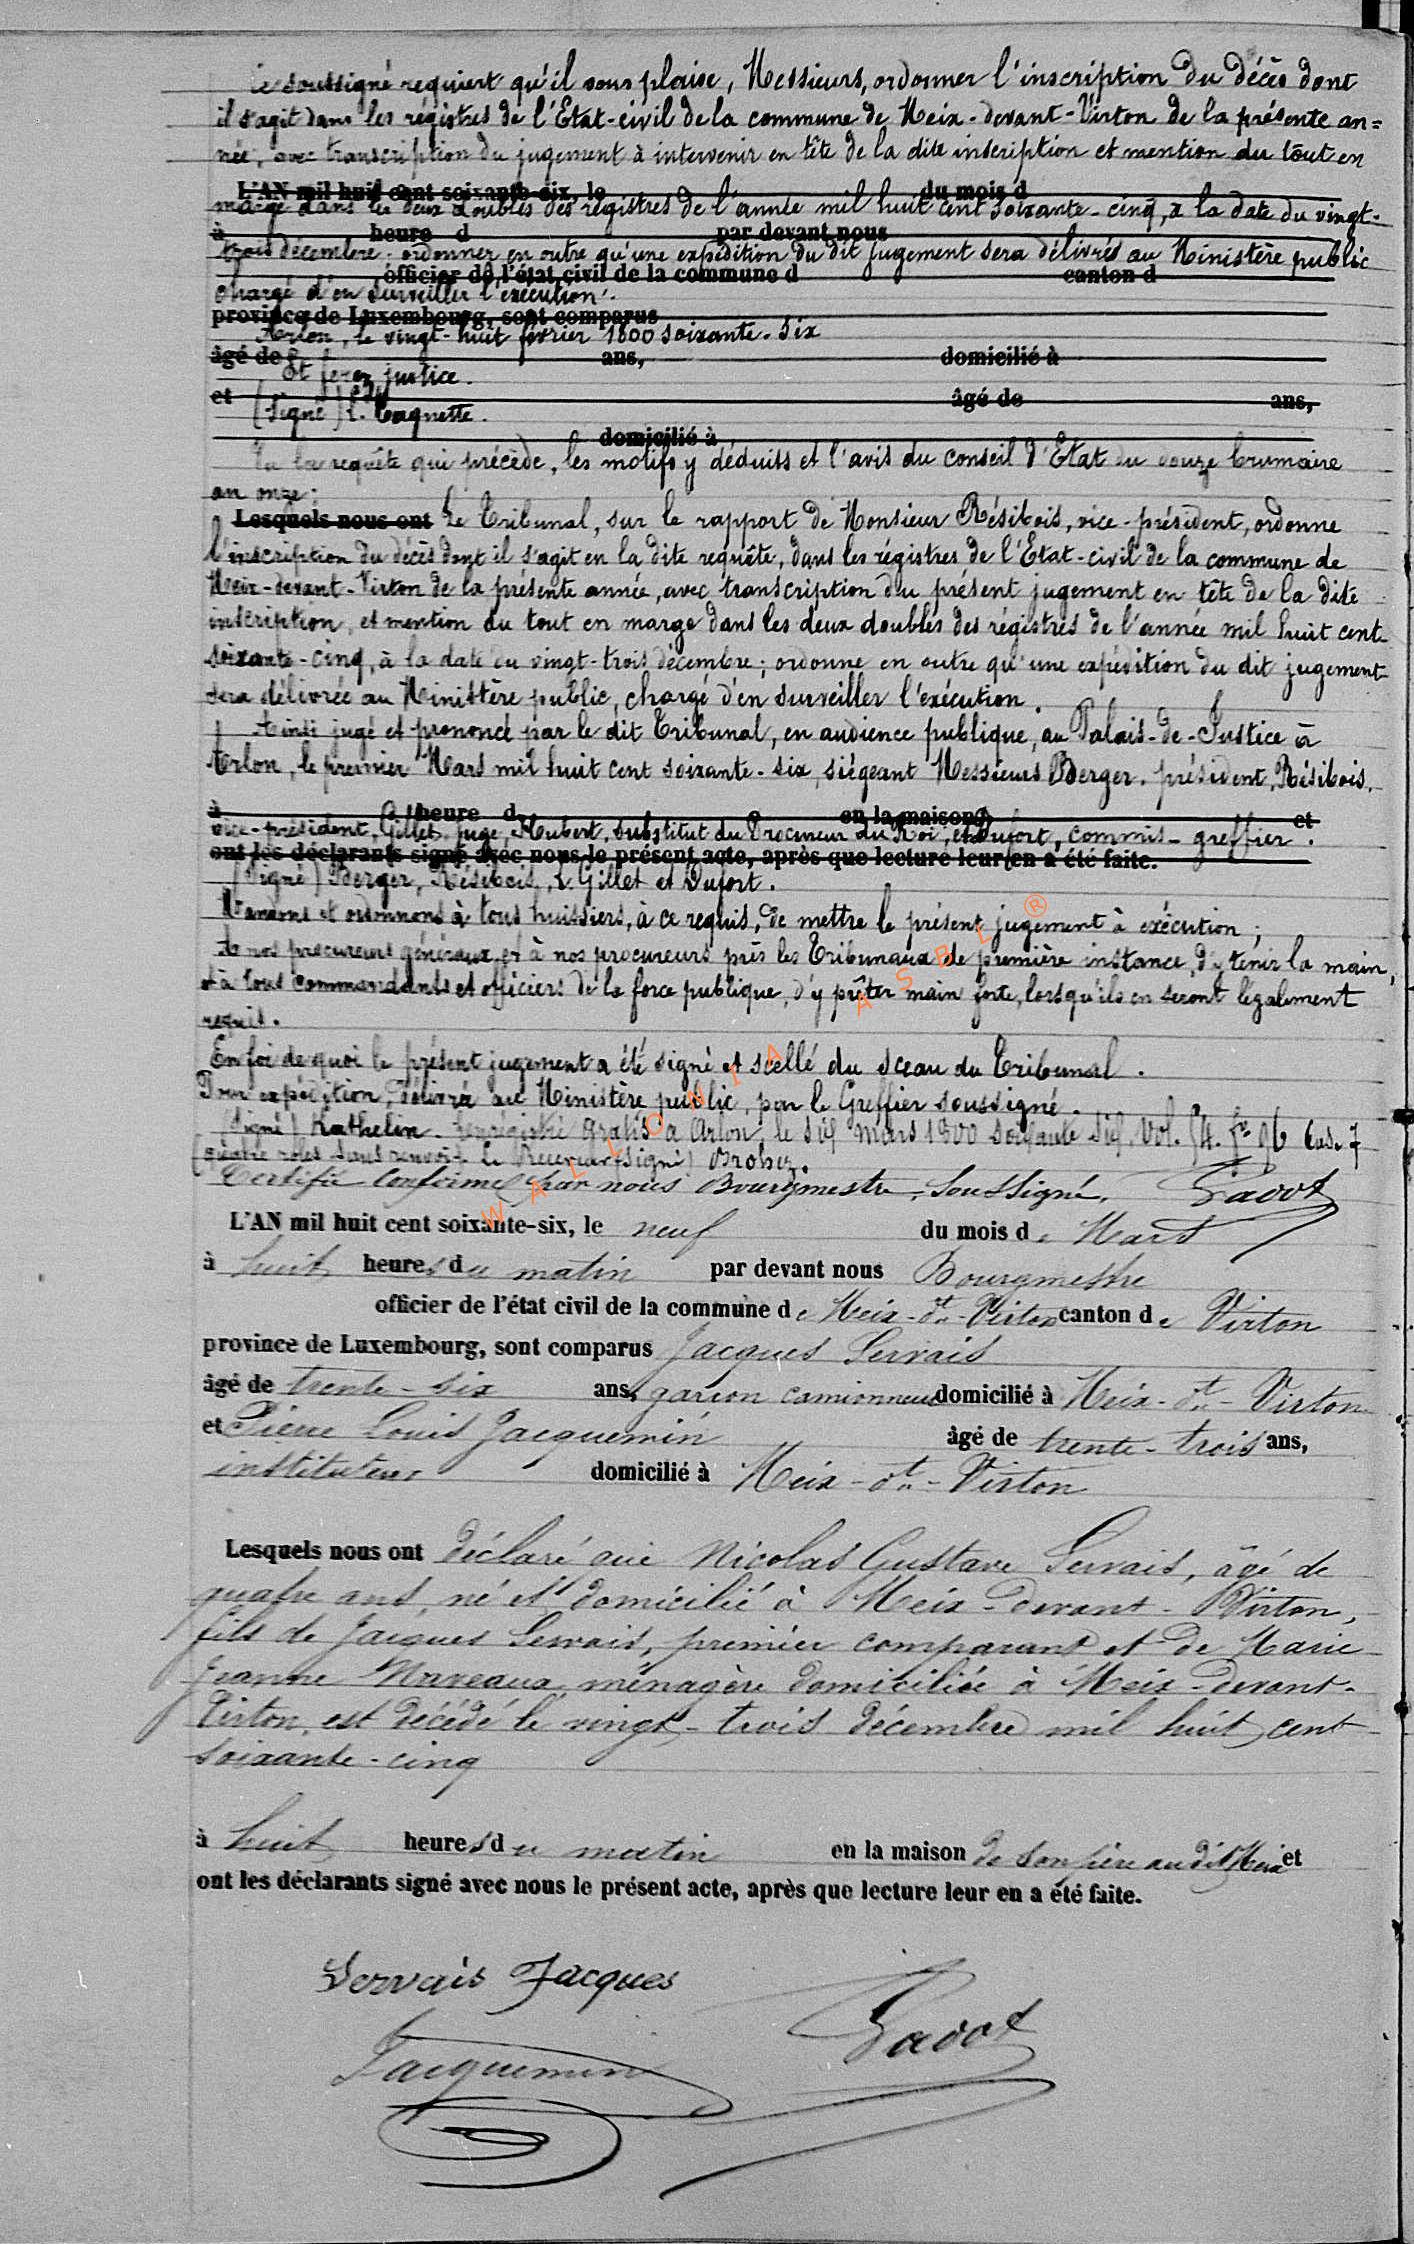 Le soussigné requiert qu'il vous plaise, Messieurs, ordonner l'inscription du décès dont
il s'agit dans les régistres de l'Etat-civil de la commune de Meix-devant-Virton de la présente an=
née, avec transcription du jugement à intervenir en tête de la dite inscription et mention du tout en
L'AN mil huit cent soixante-six, le du mois d
marge dans les deux doubles des régistres de l'année mil huit cent soixante-cinq, à la date du vingt-
à heure d par devant nous
trois décembre; ordonner en outre qu'une expédition du dit jugement sera délivrée au Ministère public
officier de l'état civil de la commune d canton d
chargé d'en surveiller l'exécution.
province de Luxembourg, sont comparus
Arlon, le vingt-huit février 1800 soixante-six
âgé de ans, domicilié à
Et ferez justice.
et âgé de ans,
(Signé)
domicilié à
Vu la requête qui précède, les motifs y déduits et l'avis du conseil d'Etat du douze brumaire
an onze;
Lesquels nous ont Le Tribunal, sur le rapport de Monsieur Résibois, vice-président, ordonne
l'inscription du décès dont il s'agit en la dite requête, dans les régistres de l'Etat-civil de la commune de
Meix-devant-Virton de la présente année, avec transcription du présent jugement en tête de la dite
inscription, et mention du tout en marge dans les deux doubles des régistres de l'année mil huit cent
soixante-cinq, à la date du vingt-trois décembre; ordonne en outre qu'une expédition du dit jugement
sera délivrée au Ministère public, chargé d'en surveiller l'exécution.
Ainsi jugé et prononcé par le dit Tribunal, en audience publique, au Palais-de-Justice à
Arlon, le premier Mars mil huit cent soixante-six, siégeant Messieurs Berger, président, Résibois,
à heure d en la maison et
vice-président, Gillet, juge, Hubert, substitut du Procureur du Roi, et Dufort, commis-greffier.
ont les déclarants signé avec nous le présent acte, après que lecture leur en a été faite.
(Signé) Berger, Résibois, L. Gillet et Dufort.
Mandons et ordonnons à tous huissiers, à ce requis, de mettre le présent jugement à exécution;
A nos procureurs généraux et à nos procureurs près les Tribunaux de première instance, d'y tenir la main,
et à tous commandants et officiers de la force publique, d'y prêter main forte, lorsqu'ils en seront légalement
requis.
En foi de quoi le présent jugement a été signé et scellé du sceau du Tribunal.
Pour expédition, délivrée au Ministère public, par le Greffier soussigné.
(Signé) Kathelin. Enregistré gratis à Arlon, le six mars 1800 soixante six, vol. 54. fo 96 Case 7
(quatre roles sans renvoi. Le Receveur (signé) Brohez.
Certifié conforme par nous Bourgmestre, soussigné. Gavot
L'AN mil huit cent soixante-six, le neuf du mois de Mars
à huit heures du matin par devant nous Bourgmestre
officier de l'état civil de la commune de Meix-dt-Virton canton de Virton
province de Luxembourg, sont comparus Jacques Servais
âgé de trente-six ans, garçon camionneur domicilié à Meix-dt-Virton
et Pierre Louis Jacquemin âgé de trente-trois ans,
instituteur domicilié à Meix-dt-Virton
Lesquels nous ont déclaré que Nicolas Gustave Servais, âgé de
quatre ans, né et domicilié à Meix-devant-Virton,
fils de Jacques Servais, premier comparant et de Marie
Jeanne Maveaux, ménagère domiciliée à Meix-devant-
Virton, est décédé le vingt-trois décembre mil huit cent
soixante-cinq
à huit heures du matin en la maison de son père au dit Meix et
ont les déclarants signé avec nous le présent acte, après que lecture leur en a été faite.
Servais Jacques
Jacquemin Gavot
WALLONIA ASBL ®